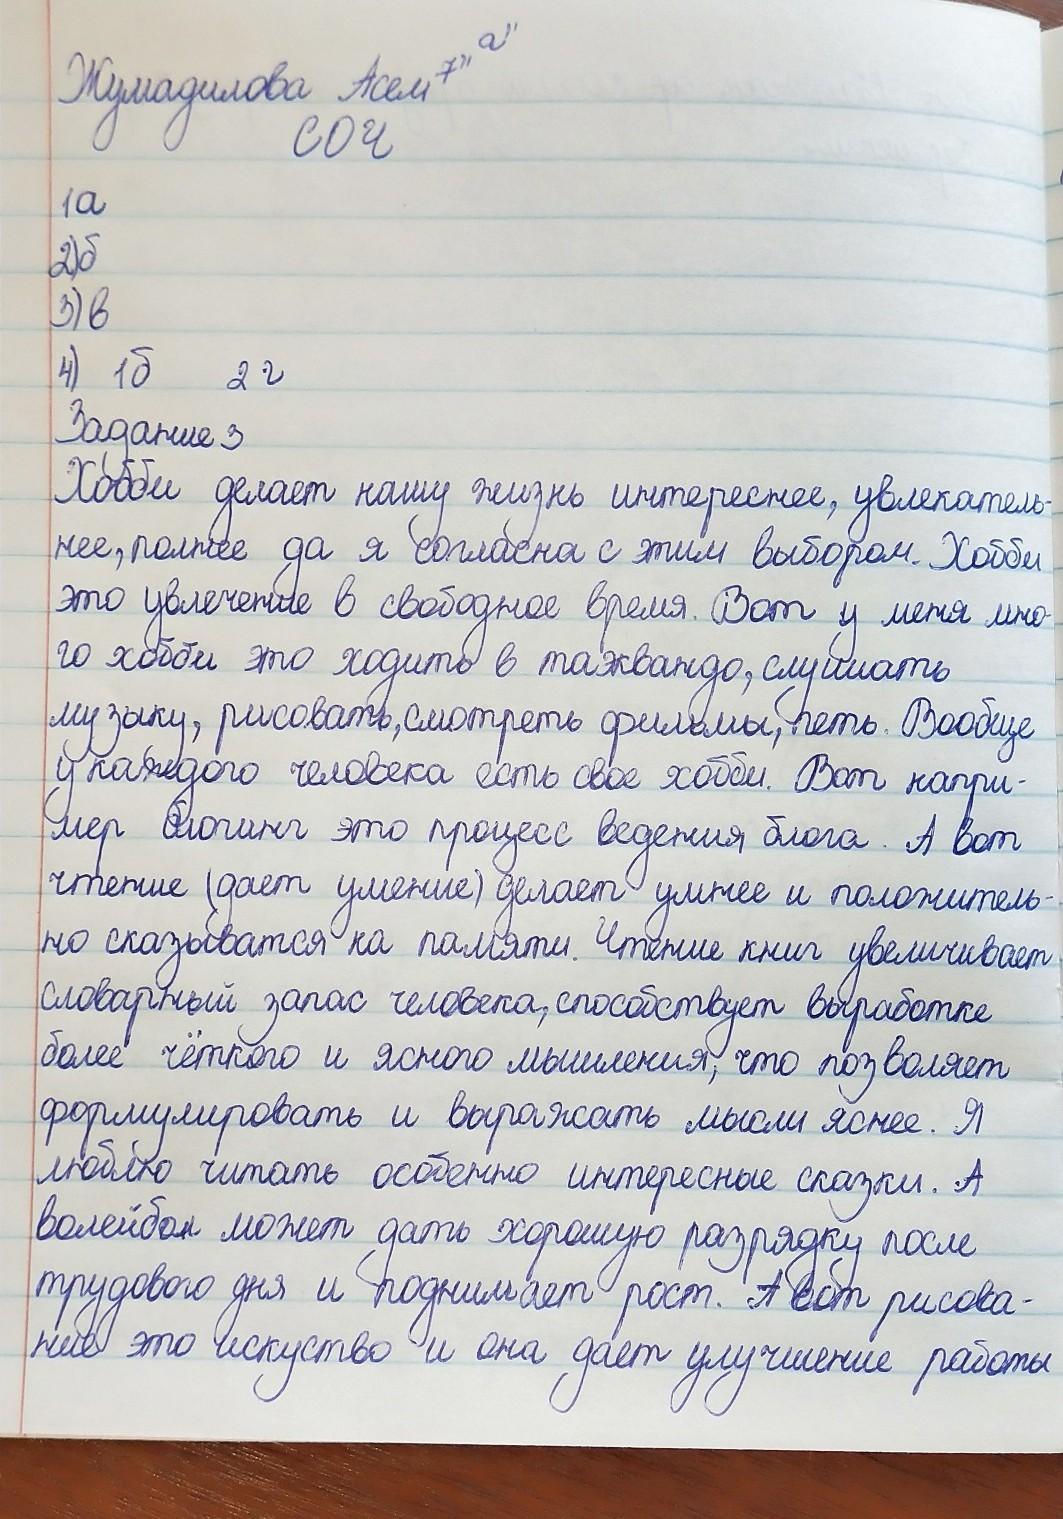 Жумадилова Асем 7"а"
СОЧ
1а
2)б
3)в
4) 1б 2г
Задание 3
Хобби делает нашу жизнь интереснее, увлекатель-
нее, полнее да я согласна с этим выбором. Хобби
это увлечение в свободное время. Вот у меня мно-
го хобби это ходить в таэквандо, слушать
музыку, рисовать, смотреть фильмы, петь. Вообще
у каждого человека есть свое хобби. Вот напри-
мер блогинг это процесс ведения блога. А вот
чтение (дает умение) делает умнее и положитель-
но сказыватся на памяти. Чтение книг увеличивает
словарный запас человека, способствует выработке
более чёткого и ясного мышления, что позволяет
формулировать и выражать мысли яснее. Я
люблю читать особенно интересные сказки. А
волейбол может дать хорошую разрядку после
трудового дня и поднимает рост. А вот рисова-
ние это искуство и она дает улучшение работы